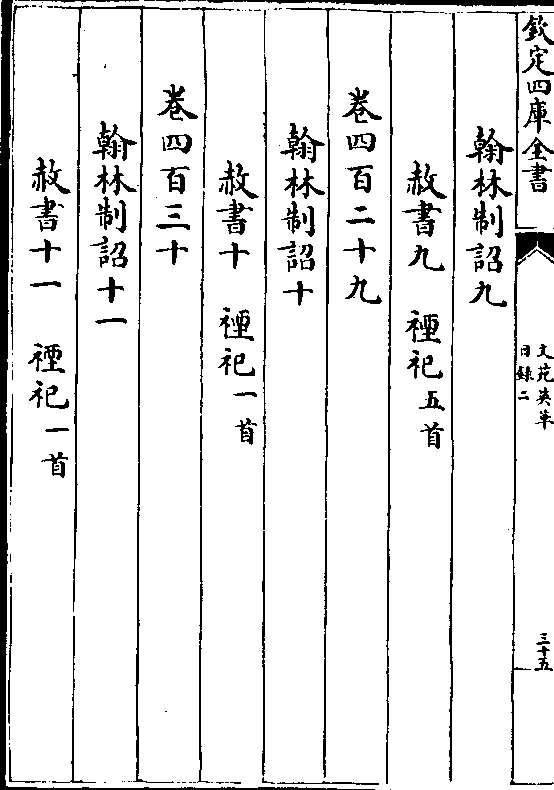 欽定四庫全書
文苑英華
目錄二
三十五
翰林制詔九
赦書九 禋祀五首
卷四百二十九
翰林制詔十
赦書十 禋祀一首
卷四百三十
翰林制詔十一
赦書十一 禋祀一首